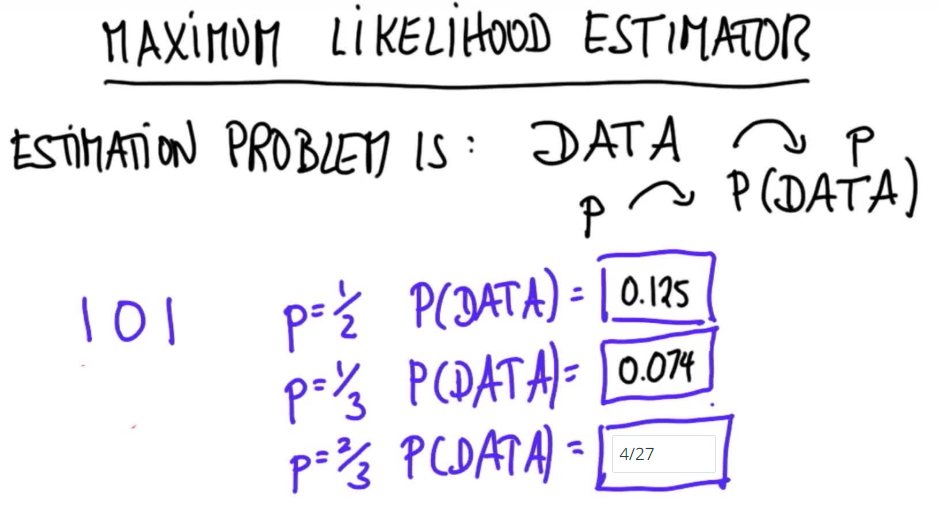 MAXIMUM LIKELIHOOD ESTIMATOR
ESTIMATION PROBLEM IS: DATA ↷ p
p ↷ P(DATA)
101 p=1/2 P(DATA) = 0.125
p=1/3 P(DATA) = 0.074
p=2/3 P(DATA) = 4/27